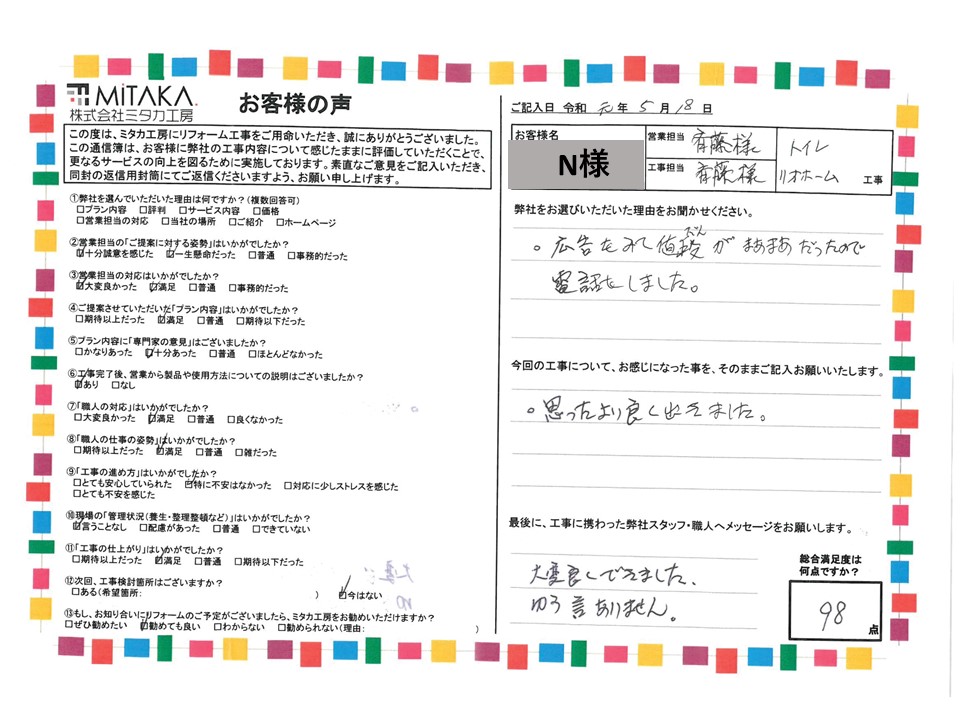 MiTAKA.
株式会社ミタカ工房
お客様の声
この度は、ミタカ工房にリフォーム工事をご用命いただき、誠にありがとうございました。
この通信簿は、お客様に弊社の工事内容について感じたままに評価していただくことで、
更なるサービスの向上を図るために実施しております。素直なご意見をご記入いただき、
同封の返信用封筒にてご返信くださいますよう、お願い申し上げます。
①弊社を選んでいただいた理由は何ですか？(複数回答可)
□プラン内容 □評判 □サービス内容 □価格
□営業担当の対応 □当社の場所 □ご紹介 □ホームページ
②営業担当の「ご提案に対する姿勢」はいかがでしたか？
☑十分誠意を感じた ☑一生懸命だった □普通 □事務的だった
③営業担当の対応はいかがでしたか？
☑大変良かった ☑満足 □普通 □事務的だった
④ご提案させていただいた「プラン内容」はいかがでしたか？
□期待以上だった ☑満足 □普通 □期待以下だった
⑤プラン内容に「専門家の意見」はございましたか？
□かなりあった ☑十分あった □普通 □ほとんどなかった
⑥工事完了後、営業から製品や使用方法についての説明はございましたか？
☑あり □なし
⑦「職人の対応」はいかがでしたか？
□大変良かった ☑満足 □普通 □良くなかった
⑧「職人の仕事の姿勢」はいかがでしたか？
□期待以上だった ☑満足 □普通 □雑だった
⑨「工事の進め方」はいかがでしたか？
□とても安心していられた ☑特に不安はなかった □対応に少しストレスを感じた
□とても不安を感じた
⑩現場の「管理状況(養生・整理整頓など)」はいかがでしたか？
☑言うことなし □配慮があった □普通 □できていない
⑪「工事の仕上がり」はいかがでしたか？
□期待以上だった ☑満足 □普通 □期待以下だった
⑫次回、工事検討箇所はございますか？
□ある(希望箇所: ) ☑今はない
⑬もし、お知り合いにリフォームのご予定がございましたら、ミタカ工房をお勧めいただけますか？
□ぜひ勧めたい ☑勧めても良い □わからない □勧められない(理由: )
ご記入日 令和 元年 5月 18日
お客様名
N様
営業担当 斉藤様
工事担当 斉藤様
トイレ
リオホーム 工事
弊社をお選びいただいた理由をお聞かせください。
。広告をみて値段がまあまあだったので
だん
電話をしました。
今回の工事について、お感じになった事を、そのままご記入お願いいたします。
。思ったより良く出きました。
最後に、工事に携わった弊社スタッフ・職人へメッセージをお願いします。
大変良くできました、
ゆう言ありません。
総合満足度は
何点ですか？
98
点